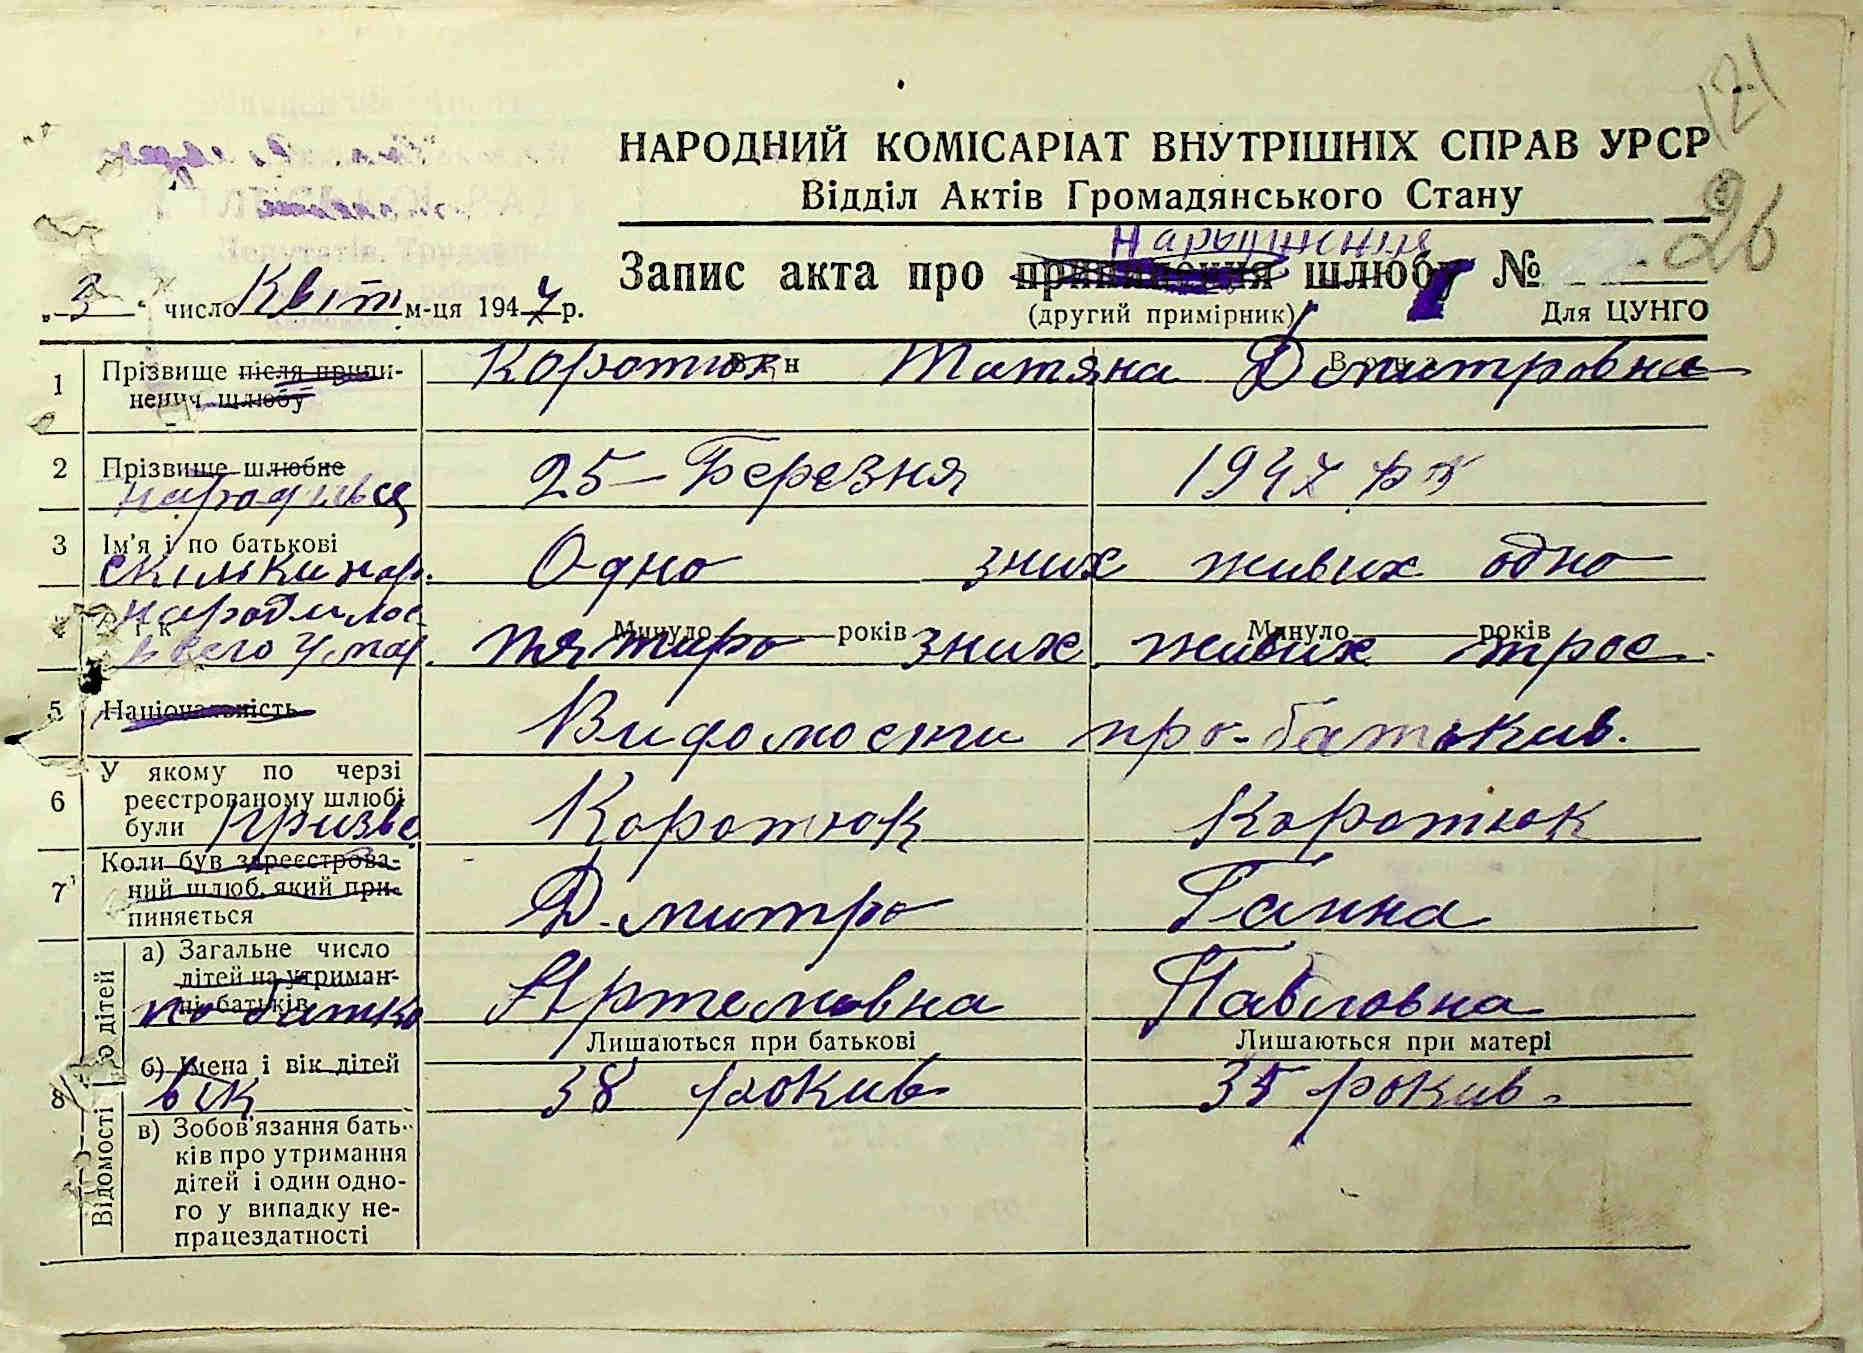 121
НАРОДНИЙ КОМІСАРІАТ ВНУТРІШНІХ СПРАВ УРСР
Відділ Актів Громадянського Стану
26
Нарыдження
Запис акта про припинення шлюбу №
„3“ число Квіт м-ця 1947 р.
(другий примірник)
Для ЦУНГО
1 Прізвище після припи-
нення шлюбу
Він Вона
Коротюк Татяна Дмитровна
2 Прізвище шлюбне
народився 25 - Березня 1947 р
3 Ім'я і по батькові
скільки нар. Одно зних живих одно
4 Вік Минуло років Минуло років
народилос
всего у мат. пятиро зних живих трое.
5 Національність Видомости про-батькив.
6 У якому по черзі
реєстрованому шлюбі
були призве Коротюк Коротюк
7 Коли був зареєстрова-
ний шлюб, який при-
пиняється
Дмитро Ганна
8 Відомості про дітей
а) Загальне число
дітей на утриман-
ні батьків
по батько Артемовна Павловна
Лишаються при батькові Лишаються при матері
б) Імена і вік дітей
вік 38 рокив 35 рокив.
в) Зобов'язання бать-
ків про утримання
дітей і один одно-
го у випадку не-
працездатності